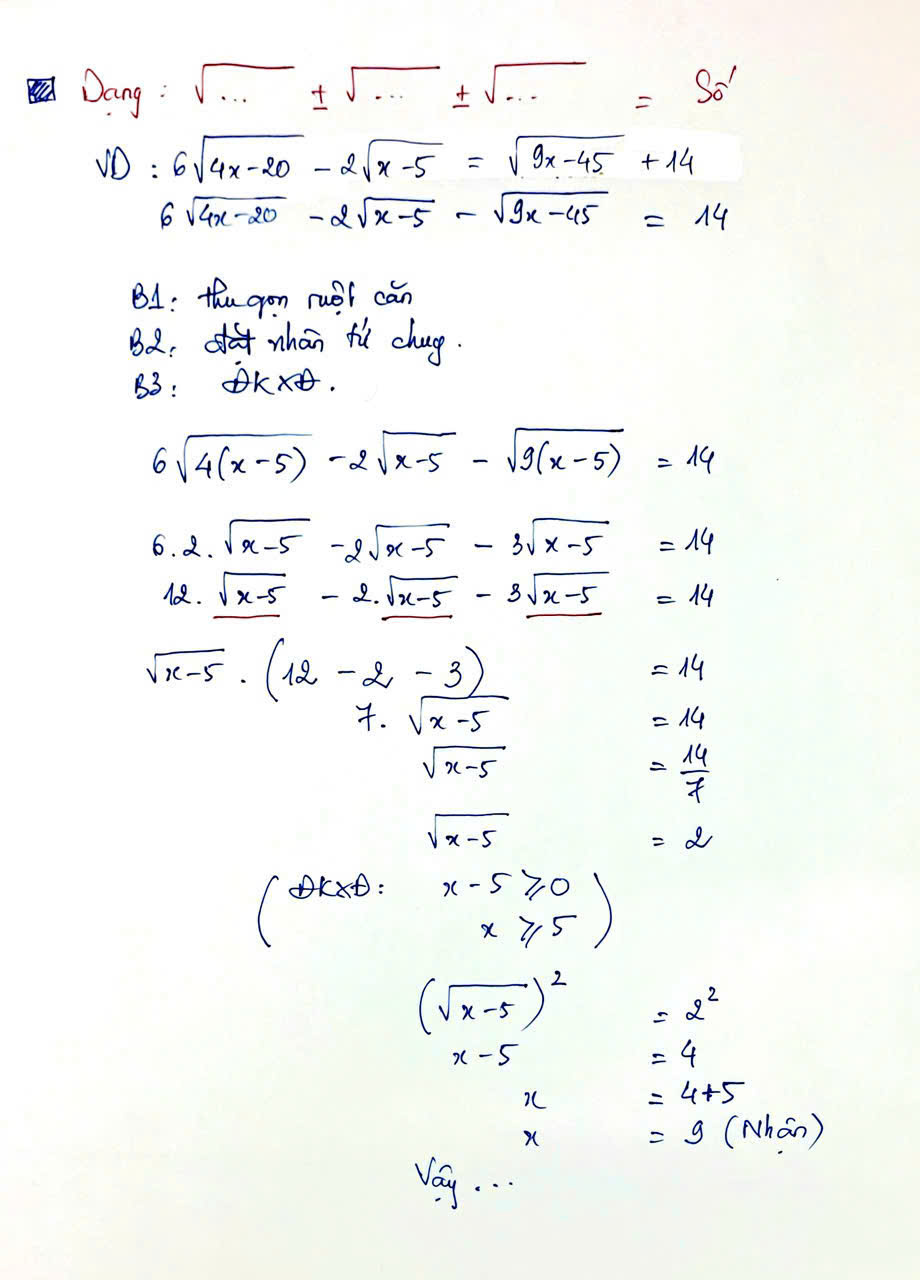 Dạng : √... ± √... ± √... = Số
VD : 6√(4x-20) - 2√(x-5) = √(9x-45) + 14
6√(4x-20) - 2√(x-5) - √(9x-45) = 14
B1: thu gọn ruột căn
B2: đặt nhân tử chug.
B3: ĐKXĐ.
6√(4(x-5)) - 2√(x-5) - √(9(x-5)) = 14
6.2.√(x-5) - 2√(x-5) - 3√(x-5) = 14
12.√(x-5) - 2.√(x-5) - 3√(x-5) = 14
√(x-5) . (12 - 2 - 3) = 14
7. √(x-5) = 14
√(x-5) = 14/7
√(x-5) = 2
(ĐKXĐ: x - 5 ⩾ 0
x ⩾ 5)
(√(x-5))² = 2²
x - 5 = 4
x = 4+5
x = 9 (Nhận)
Vậy ...